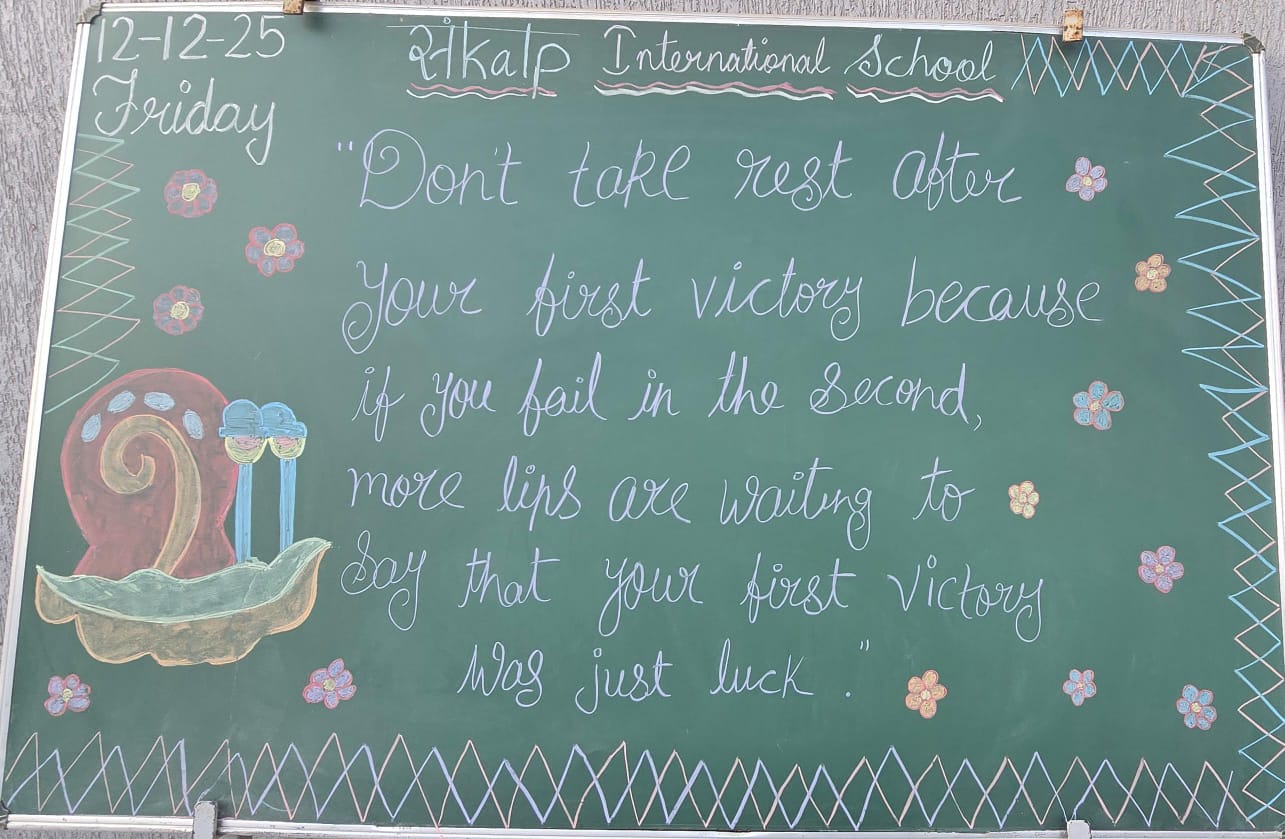 12-12-25
Friday
संkalp International School
"Don't take rest after
your first victory because
if you fail in the second,
more lips are waiting to
say that your first victory
was just luck."